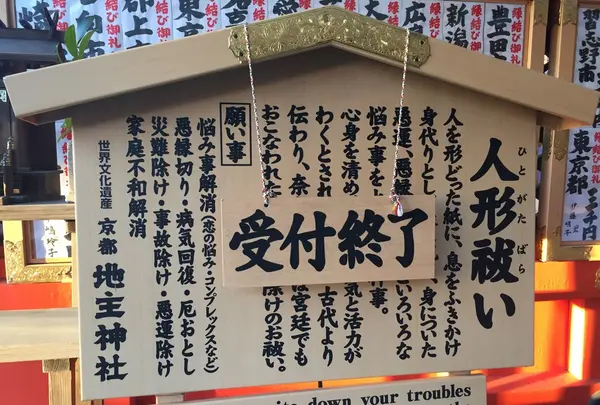 ひとがたばら
人形祓い
人を形どった紙に、息をふきかけ
身代りとし 、身についた
悪運、悪縁 いろいろな
悩み事を 事。
心身を清め 気と活力が
わくとされ 古代より
伝わり、奈 は宮廷でも
おこなわれた 除けのお祓い。
受付終了
願い事
悩み事解消(恋の悩・コンプレックスなど)
悪縁切り・病気回復・厄おとし
災難除け・事故除け・悪運除け
家庭不和解消
世界文化遺産 京都 地主神社
down your troubles
縁結び御礼
郡上市
縁結び御礼
東京
縁結び御礼
新潟
縁結び御礼
豊田市
習志野市
東京都